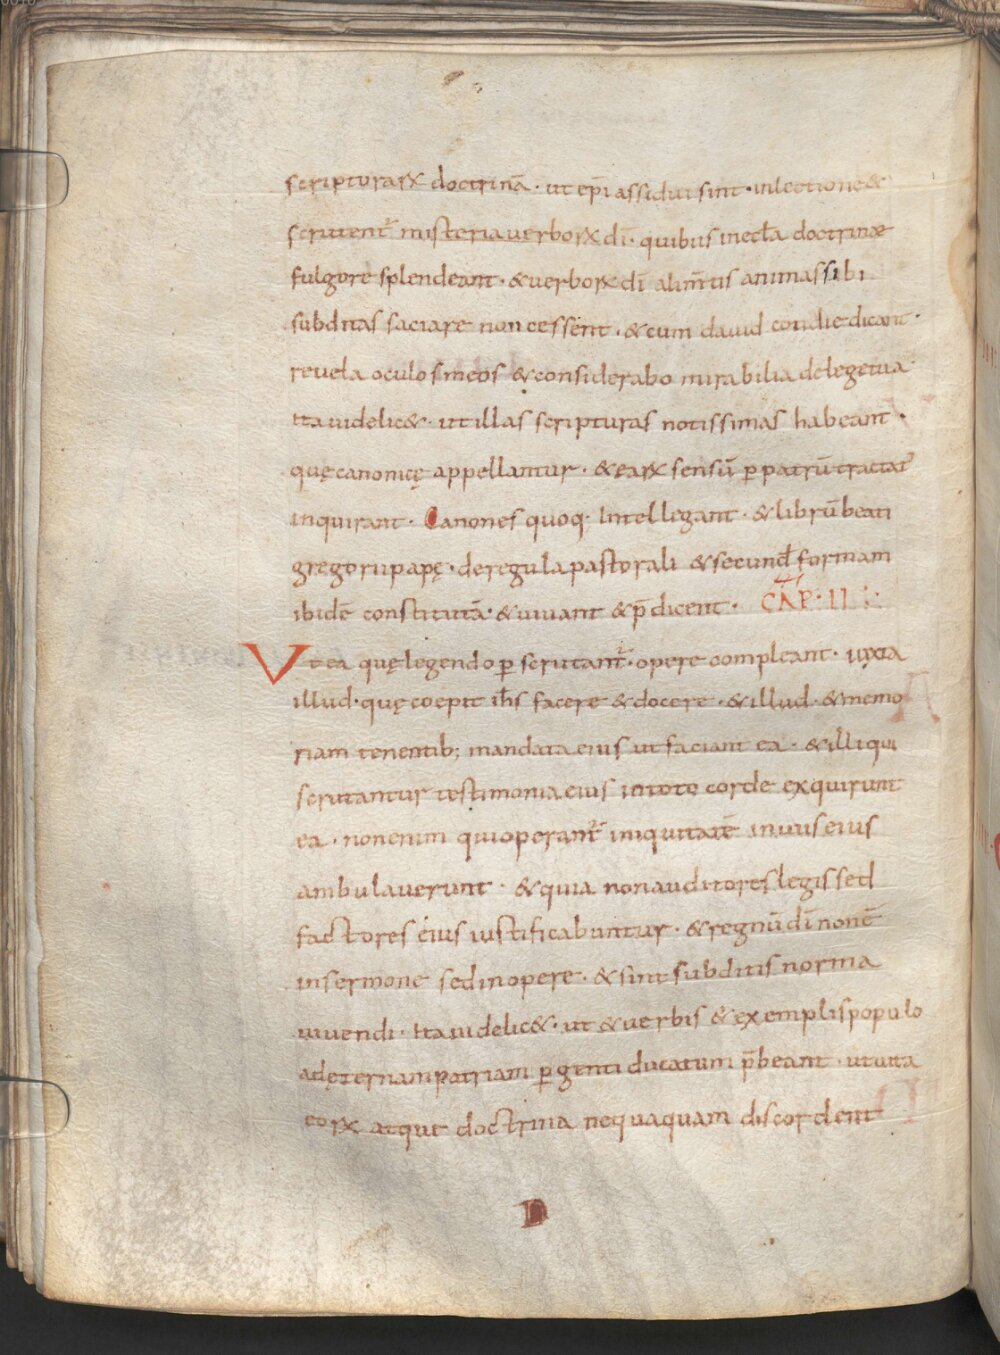 scripturarꝝ doctrinā · ut ep̄i assidui sint · inlectione &
scrutent᷑ misteria uerborꝝ dī · quibus in eccƚa doctrinae
fulgore splendeant · & uerborꝝ dī alim̄tis animas sibi
subditas saciare non cessent · & cum dauid cotidie dicant ·
reuela oculos meos & considerabo mirabilia delege tua
ita uidelic& · ut illas scripturas notissimas habeant ·
quę canonicę appellantur · & earꝝ sensū ꝑ patrū tractat᷑
inquirant · Canones quoq· Intellegant · & librū beati
gregorii papę · de regula pastorali & secund̄ formam
ibidē constitutā · & uiuant & p̄dicent · CAP · II :·
Vt ea quę legendo ꝑ scrutant᷑ · opere compleant · iuxta
illud · quę coepit ih̄s facere & docere · & illud · & memo
riam tenentib; mandata eius ut faciant ea · & illi qui
scrutantur testimonia eius in toto corde exquirunt
ea · non enim qui operant᷑ iniquitatē in uiis eius
ambulauerunt · & quia non auditores legis sed
factores eius iustificabuntur · & regnū dī non ē
in sermone sed in opere · & sint subditis norma
uiuendi · Ita uidelic& · ut & uerbis & exemplis populo
ad ęternam patriam ꝑgenti ducatum p̄beant · ut uita
eorꝝ atque doctrina nequaquam discordent
D